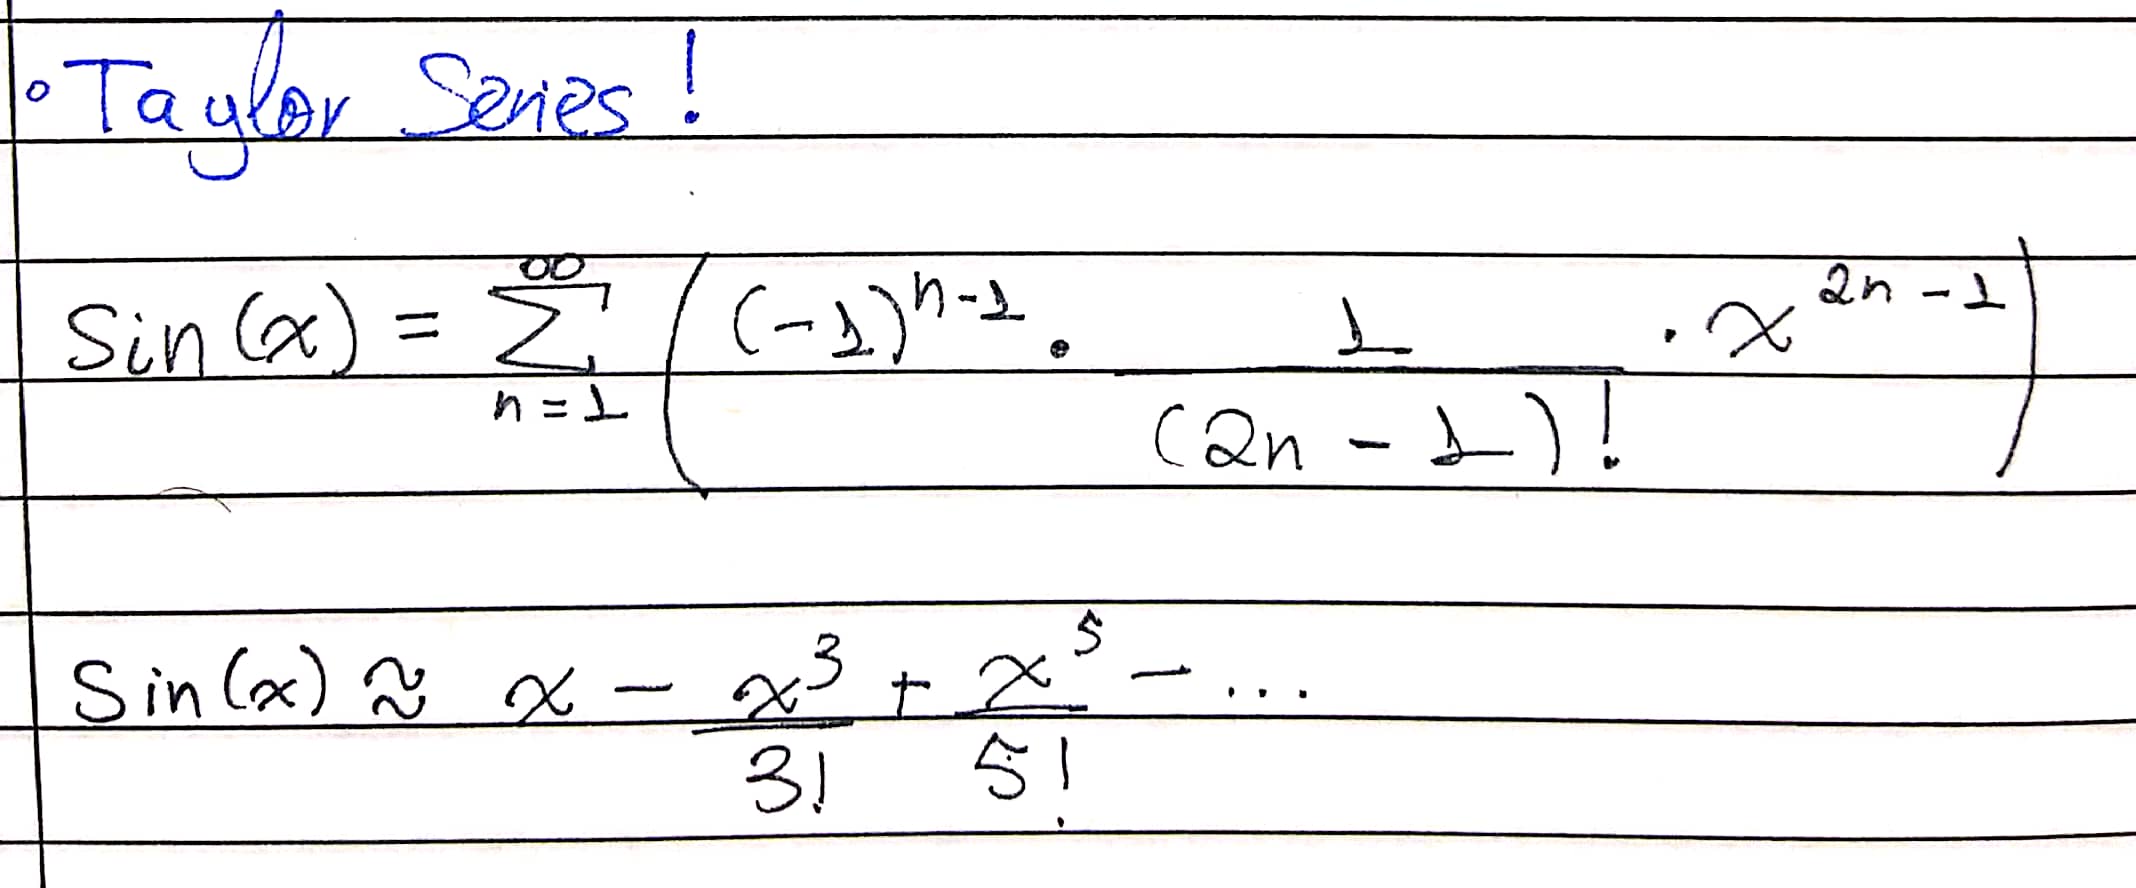 ◦ Taylor Series!
Sin(x) = ∑_{n=1}^{∞} ((-1)^{n-1} · \frac{1}{(2n-1)!} · x^{2n-1})
Sin(x) ≈ x - \frac{x^3}{3!} + \frac{x^5}{5!} - ...